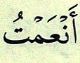 أَنْعَمْتُ